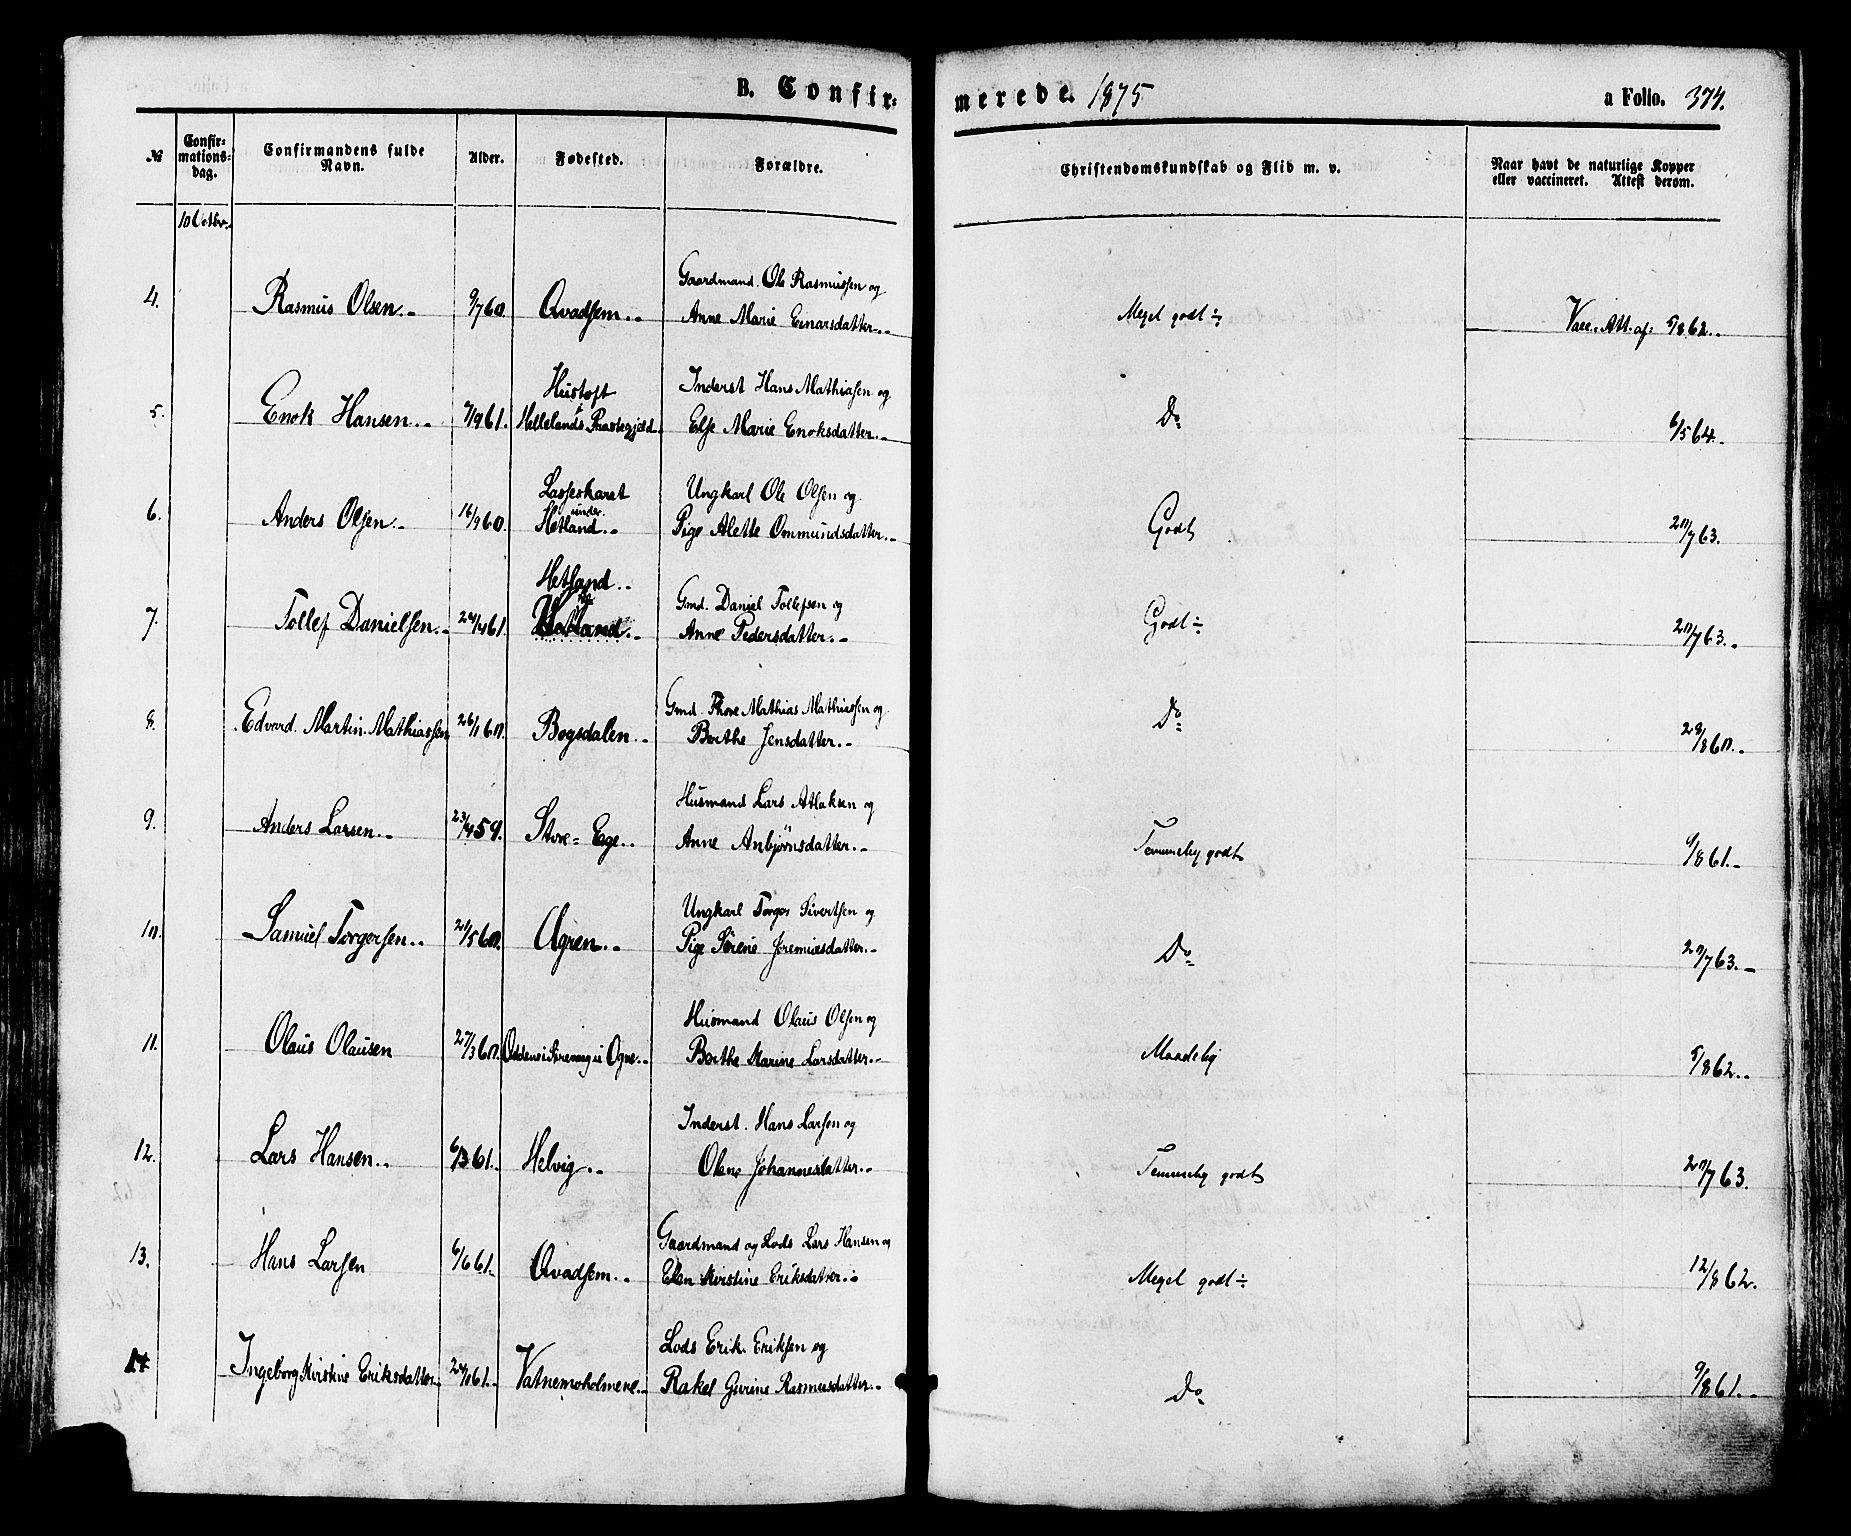 B. Confir-
merede. 1875
a Folio. 374.
№
Confir-
mations-
dag.
Confirmandens fulde
Navn.
Alder.
Fødested.
Forældre.
Christendomskundskab og Flid m. v.
Naar havt de naturlige Kopper
eller vaccineret. Attest derom.
10 Octbr.
Gaardmand Ole Rasmussen og
4. Rasmus Olsen 9/7 60 Qvadsem Anne Marie Einarsdatter Meget godt Vacc. Att. af: 5/8 62.
Hustoft Inderst Hans Mathiasen og
5. Enok Hansen 7/9 61. Hellelands Præstegjeld Else Marie Enoksdatter Do 6/5 64.
Lasseskaret Ungkarl Ole Olsen og
under
6. Anders Olsen 16/9 60. Hetland Pige Alette Ommundsdatter Godt 20/7 63.
Hetland Gmd. Daniel Tollefsen og
7. Tollef Danielsen 24/4 61. Anne Pedersdatter Godt 20/7 63.
Gmd. Thore Mathias Mathiassen og
8. Edvard Martin Mathiassen 26/1 60. Bogsdalen Berthe Jensdatter Do 28/8 60.
Husmand Lars Atlaksen og
9. Anders Larsen 23/4 59. Store-Ege Anne Anbjørnsdatter Temmelig godt 9/8 61.
Ungkarl Torger Sivertsen og
10. Samuel Torgersen 20/5 60. Ogren Pige Serine Jeremiesdatter Do 20/7 63.
Husmand Olaus Olsen og
11. Olaus Olausen 27/3 60. i Ogne Berthe Karine Larsdatter Maadelig 5/8 62.
Inderst Hans Larsen og
12. Lars Hansen 6/3 61. Helvig Olene Johannesdatter Temmelig godt 20/7 63.
Gaardmand og Lods Lars Hansen og
13. Hans Larsen 6/6 61. Qvadsem Elen Kirstine Eriksdatter Meget godt 12/8 62.
Lods Erik Eriksen og
14 Ingeborg Kirstine Eriksdatter Vatnemoholmene Rakel Gurine Rasmusdatter Do 9/8 61.